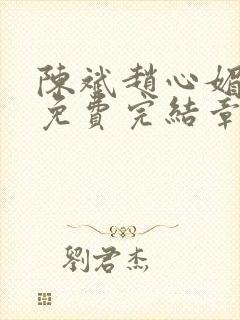 陳斌趙心媚
免費完結章
劉君杰